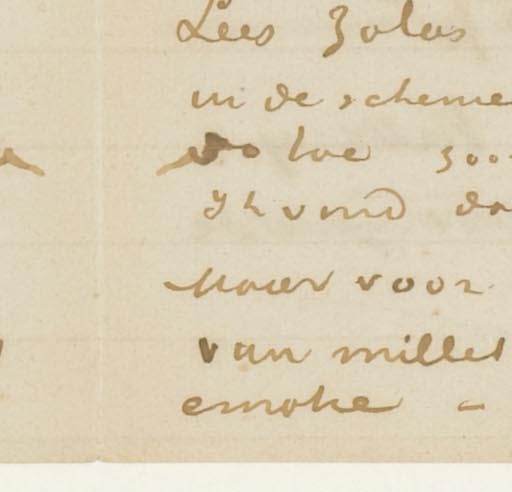 Lees Zolas
in de scheme
do toe zoo
Ik vond da
Maar voor
van millet
emotie –